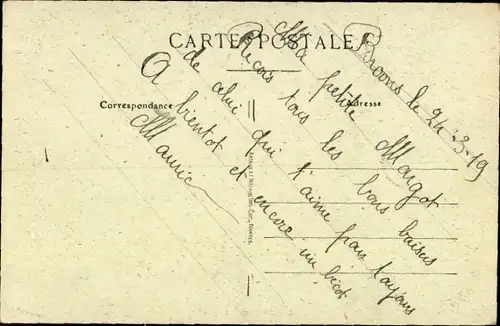 CARTE POSTALE
Correspondance
Adresse
le 24-3-19
Ma petite Margot
Reçois tous les bons baisers
de celui qui t'aime pour toujours
A bientot et encore un bécot
Maurice